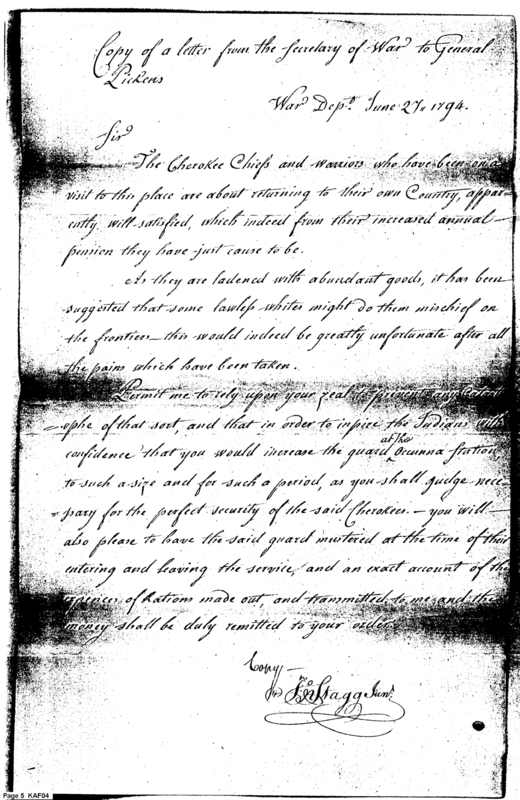 Copy of a letter from the Secretary of War to General
Pickens
War Dept. June 27 1794.
Sir
The Cherokee Chiefs and warriors who have been on a
visit to this place are about returning to their own Country, appar-
ently will satisfied, which indeed from their increased annual
pension they have just cause to be.
As they are ladened with abundant goods, it has been
suggested that some lawless whites might do them mischief on
the frontiers this would indeed be greatly unfortunate after all
the pains which have been taken.
Permit me to rely upon your zeal to prevent any Catas-
trophe of that sort, and that in order to inspire the Indians with
confidence that you would increase the guard at the Ocunna Station
to such a size and for such a period, as you shall judge nece-
ssary for the perfect security of the said Cherokees. — you will
also please to have the said guard mustered at the time of their
entering and leaving the service, and an exact account of the
expences of Rations made out, and transmitted to me and the
money shall be duly remitted to your order.
Copy —
Jno Stagg Junr.
Page 5 KAF04